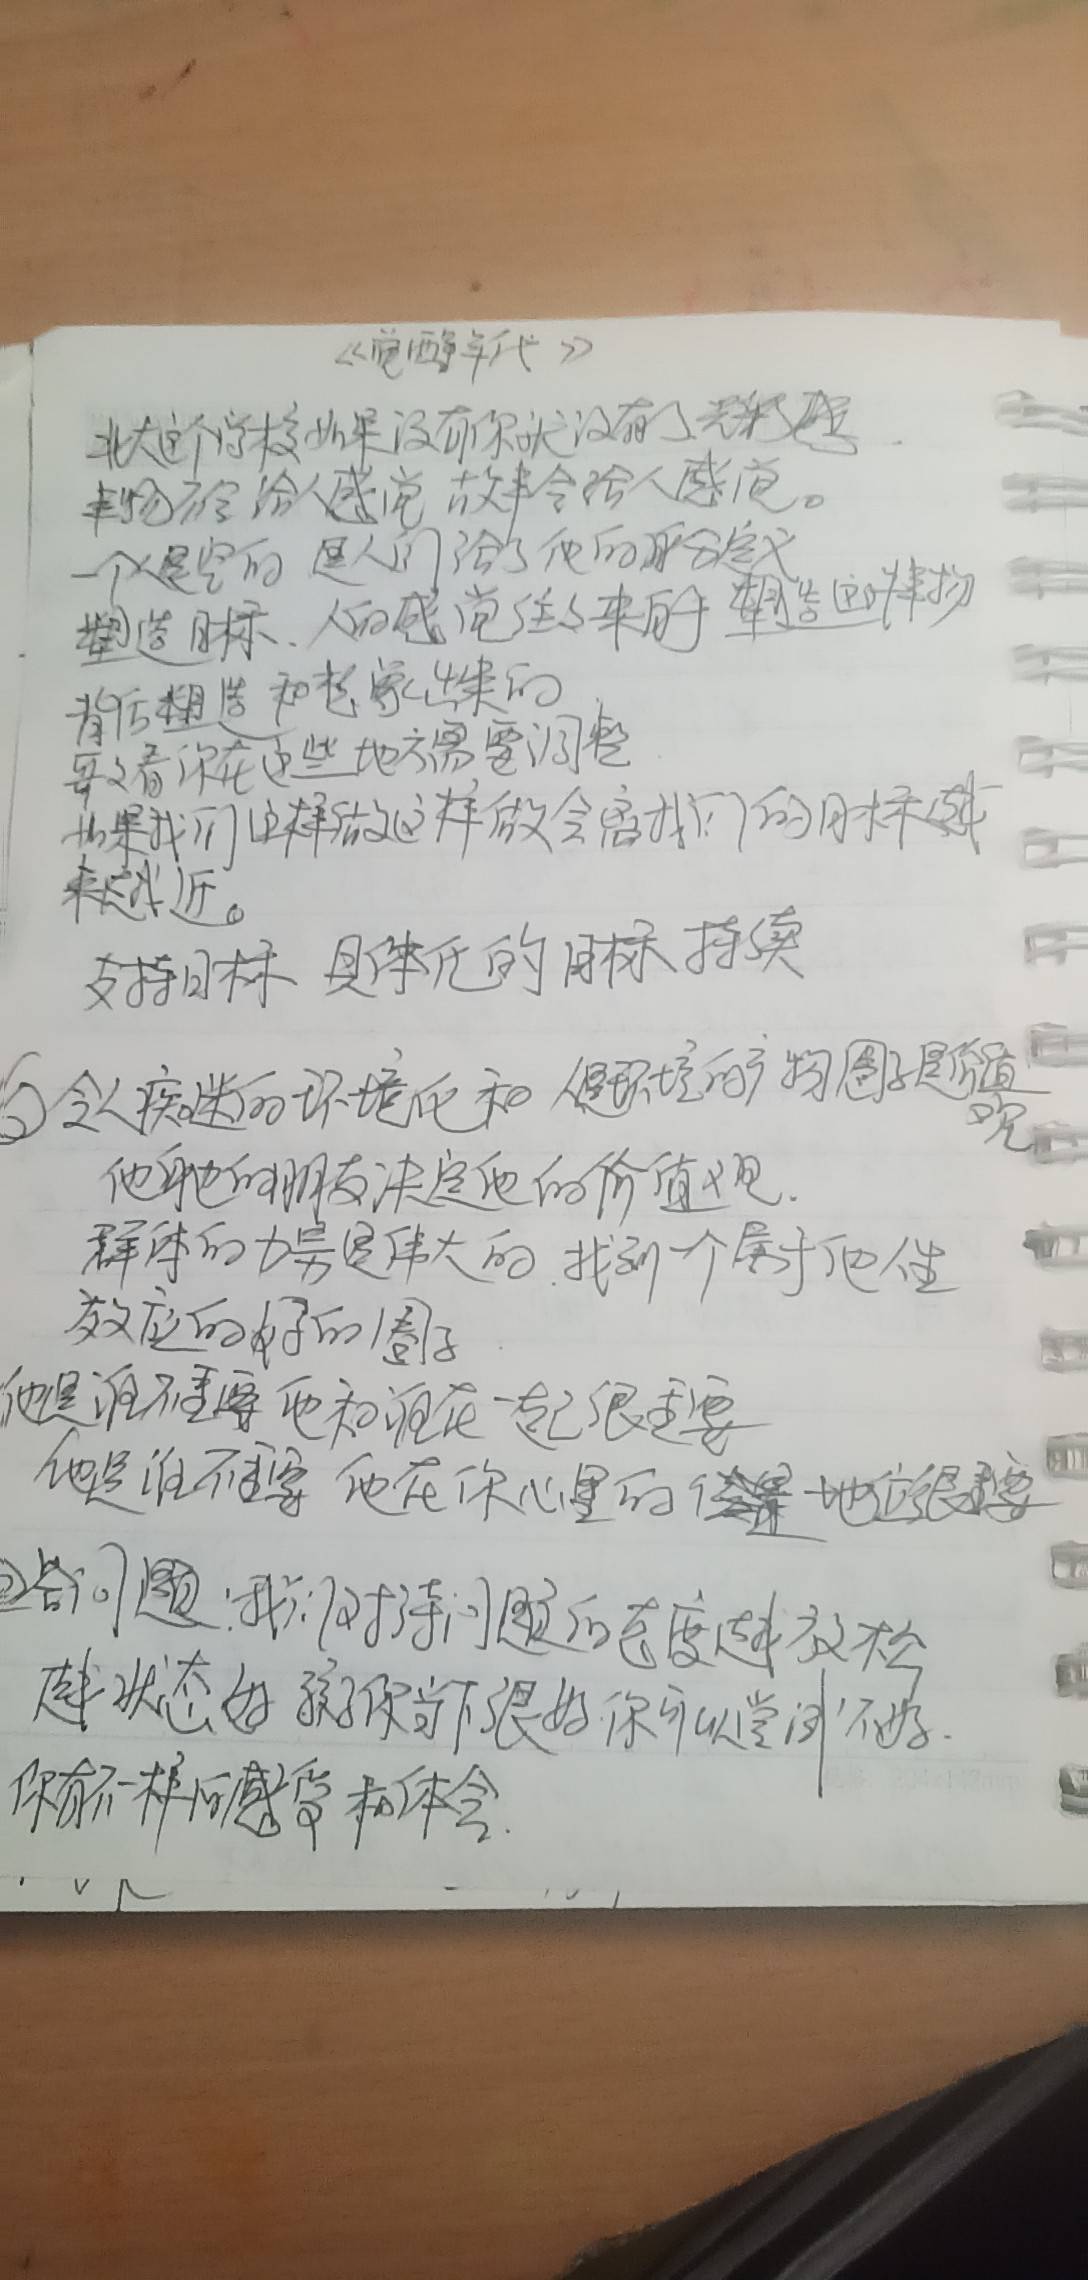 《觉醒年代》
北大这个学校如果没有你就没有了
事物不会给人感觉 故事会给人感觉。
一个人是空的 是人们给了他的 定义
塑造目标、人的感觉往往来自于塑造这件事物
背后塑造和想象出来的
要看你在这些地方需要调整
如果我们这样做这样做会离我们的目标越
来越近。
支持目标 具体化的目标 持续
令人疾迷的环境化和 人是环境的产物圈子是价值
观
他身边的朋友决定他的价值观.
群体的力量是伟大的.找到一个属于他人生
效应的好的圈子
他是谁不重要 他和谁在一起很重要
他是谁不重要 他在你心里的 地位很重要
②答问题:我们对待问题的态度越放松
越状态好 孩子你当下很好 你可以尝试不好.
你有不一样的感受和体会.